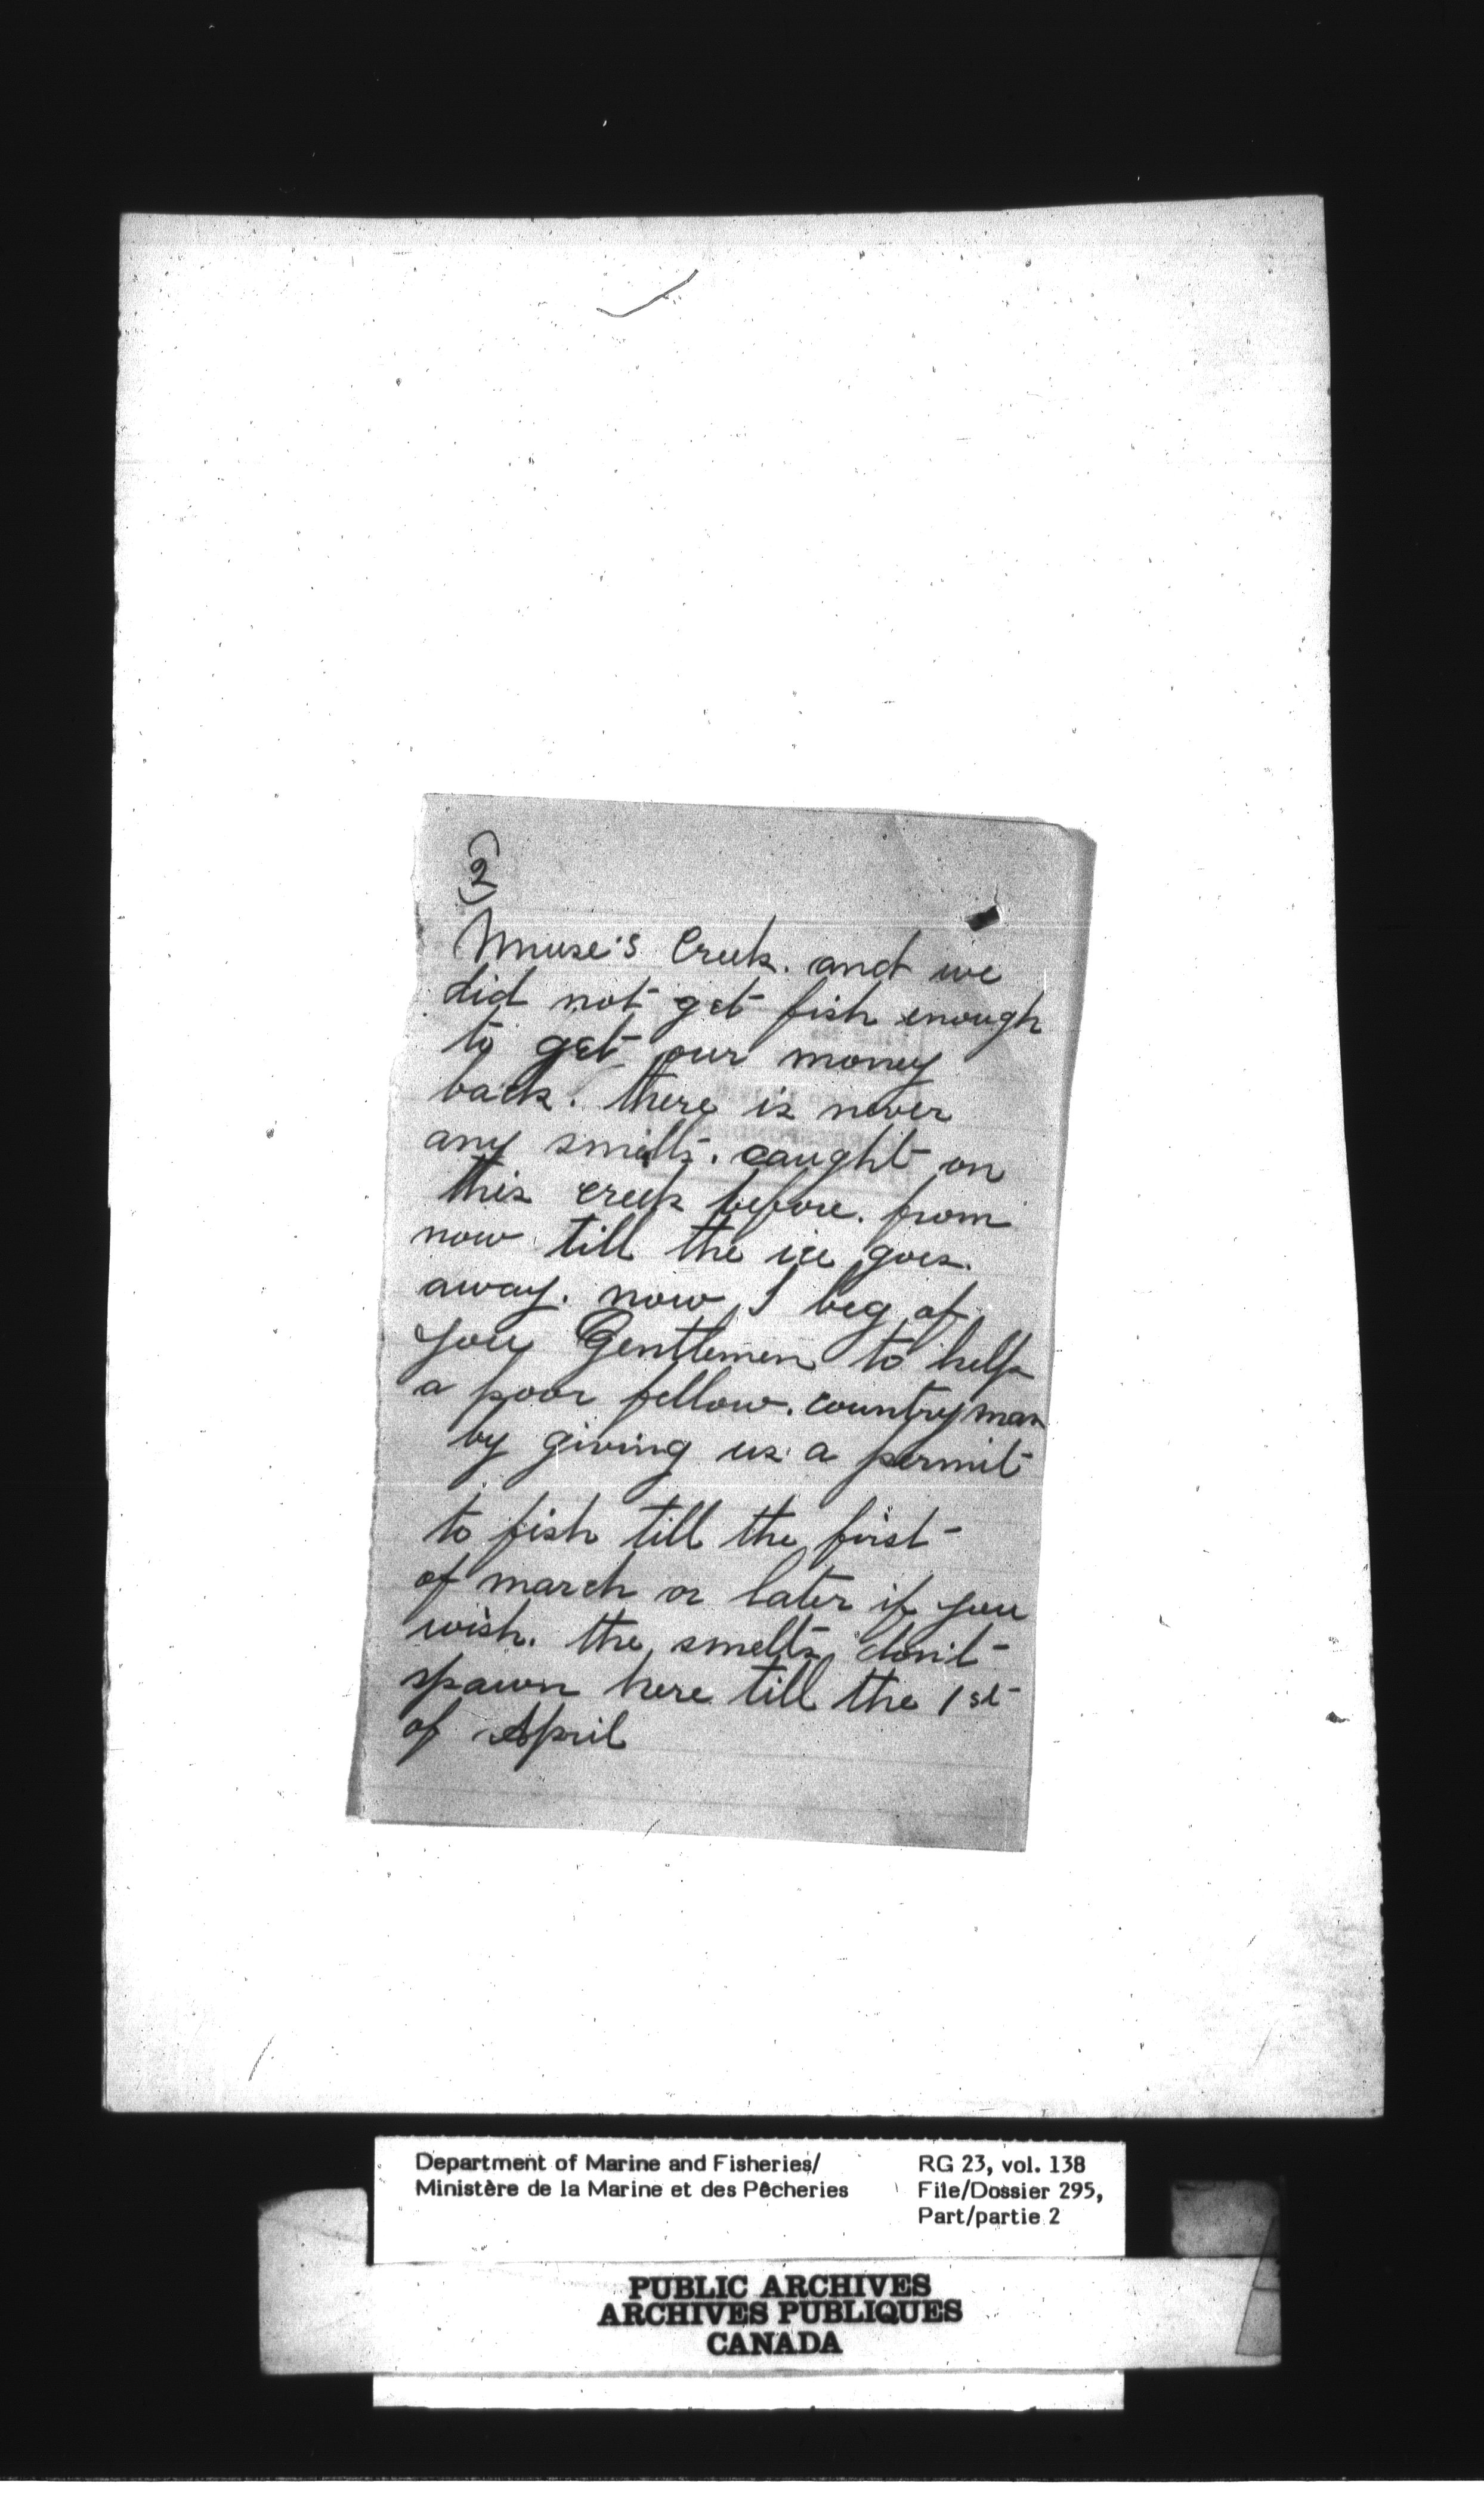 2
Muuse's Creek. and we
did not get fish enough
to get our money
back. there is never
any smelts. caught on
this creek before. from
now till the ice goes.
away. now I beg of
you Gentlemen to help
a poor fellow. countryman
by giving us a permit
to fish till the first
of march or later if you
wish. the smelts don't
spawn here till the 1st
of April
Department of Marine and Fisheries/
Ministère de la Marine et des Pêcheries
RG 23, vol. 138
File/Dossier 295,
Part/partie 2
PUBLIC ARCHIVES
ARCHIVES PUBLIQUES
CANADA